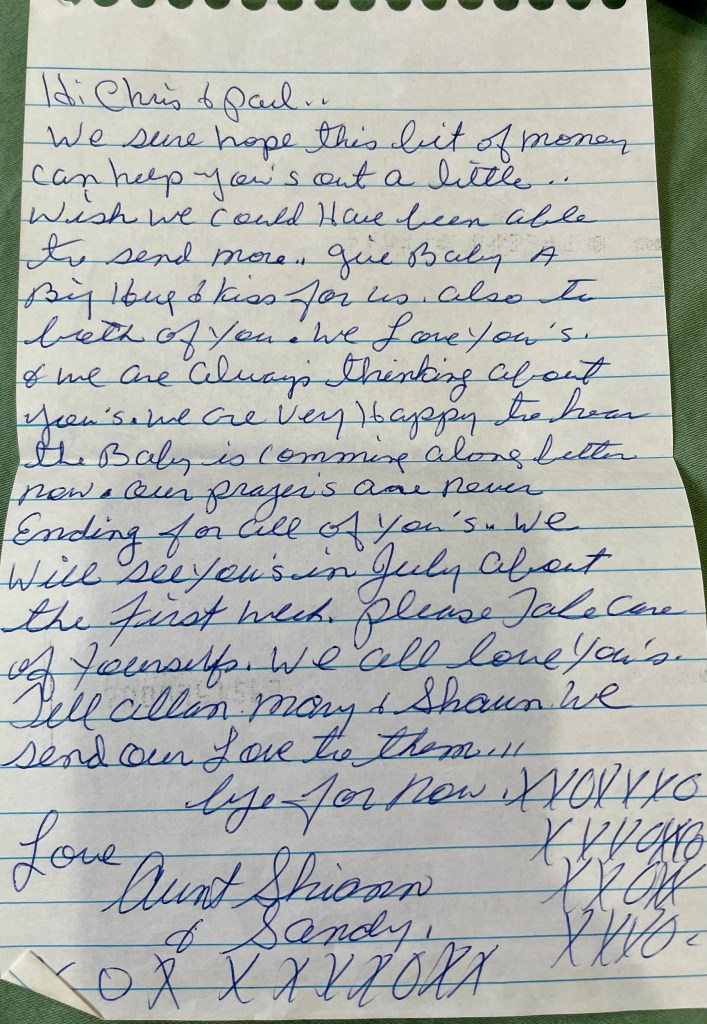 Hi Chris & Paul..
We sure hope this bit of money
can help you's out a little..
Wish we could Have been able
to send more.. give Baby A
Big Hug & Kiss for us. also to
both of you. We Love you's.
& we are always thinking about
you's. we are very Happy to hear
the Baby is comming along better
now. our prayer's are never
Ending for all of you's.. We
Will see you's in July about
the first week. please Take Care
of yourselfs. We all love you's.
Tell allan. mary & Shaun. We
send our Love to them...
bye-for now. XXOXXXO
XXXOXXO
Love
Aunt Shiann XXOXX
& Sandy. XXXO
OX XXXXOXX